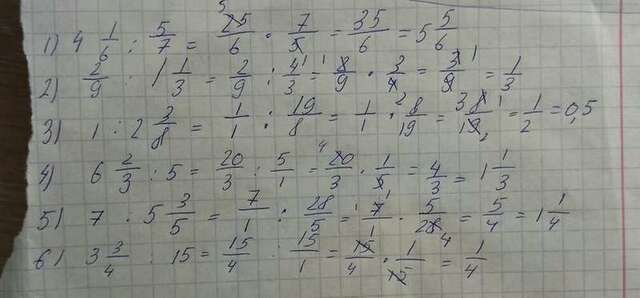 1) 4 1/6 : 5/7 = 25/6 · 7/5 = 35/6 = 5 5/6
2) 2/9 : 1 1/3 = 2/9 : 4/3 = 8/9 · 3/4 = 3/9 = 1/3
3) 1 : 2 3/8 = 1/1 : 19/8 = 1/1 · 8/19 = 38/19 = 1/2 = 0,5
4) 6 2/3 : 5 = 20/3 : 5/1 = 20/3 · 1/5 = 4/3 = 1 1/3
5) 7 : 5 3/5 = 7/1 : 28/5 = 7/1 · 5/28 = 5/4 = 1 1/4
6) 3 3/4 : 15 = 15/4 : 15/1 = 15/4 · 1/15 = 1/4